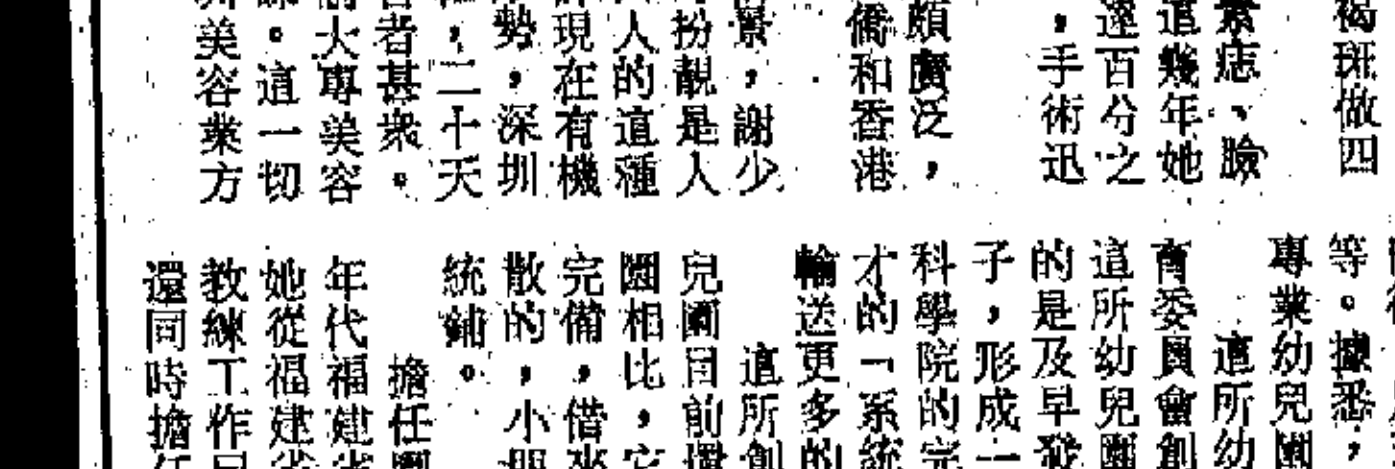 褐斑做四
素痣、臉
這幾年她
逐百分之
，手術迅
頗廣泛，
僑和香港
景，謝少
扮靚是人
人的這種
現在有機
勢，深圳
，二十天
者甚衆。
大專美容
。這一切
圳美容業方
等。據悉，
專業幼兒園
這所幼
育委員會創
這所幼兒園
的是及早發
子，形成一
科學院的完
才的「系統
輸送更多的
這所創
兒園目前還
園相比，它
完備，借來
散的，小朋
統鋪。
擔任園
年代福建省
她從福建省
教練工作
還同時擔任